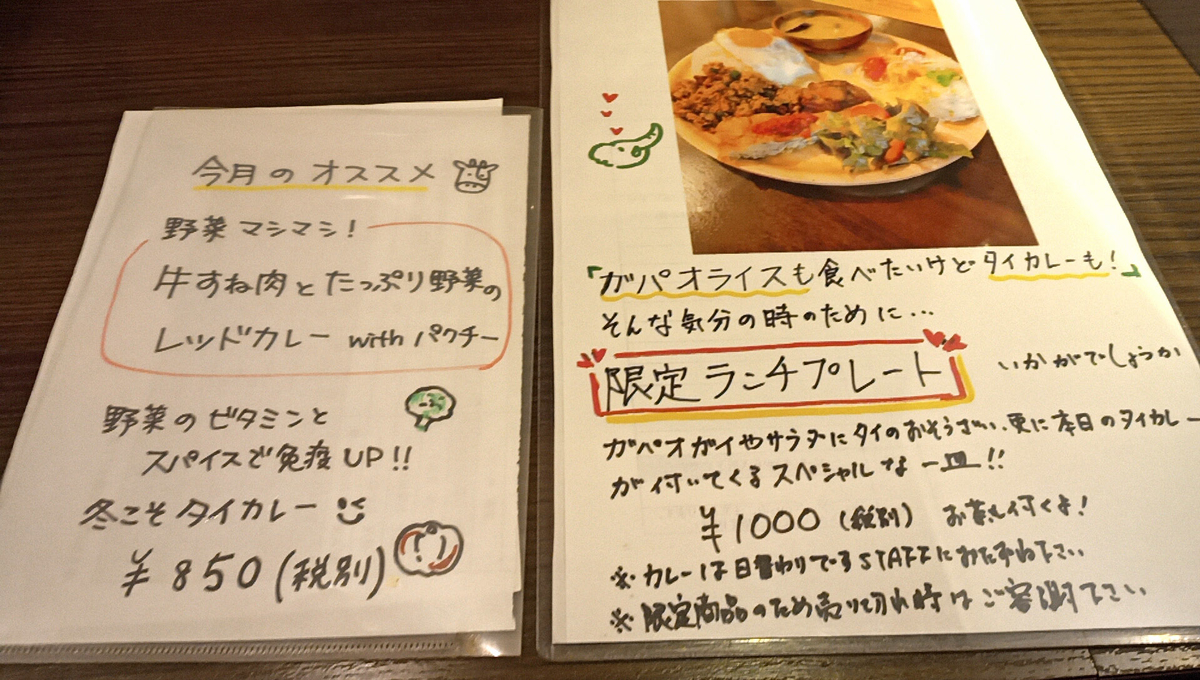 今月のオススメ
野菜マシマシ!
牛すね肉とたっぷり野菜の
レッドカレー with パクチー
野菜のビタミンと
スパイスで免疫UP!!
冬こそタイカレー
¥850(税別)
『ガパオライスも食べたいけどタイカレーも!』
そんな気分の時のために…
限定ランチプレート いかがでしょうか
ガパオガイやサラダにタイのおそうざい、更に本日のタイカレー
が付いてくるスペシャルな一皿!!
¥1000(税別) お茶も付くよ!
※カレーは日替わりですSTAFFにおたずね下さい
※限定商品のため売り切れ時はご容謝下さい